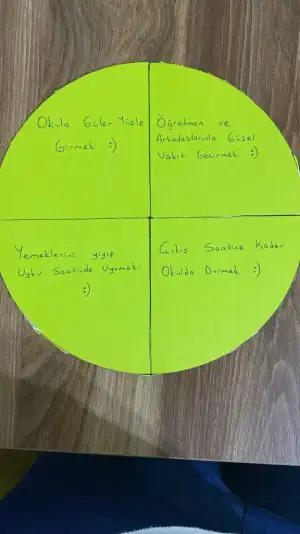 Okula Güler Yüzle
Girmek :)
Öğretmen ve
Arkadaşlarınla Güzel
Vakit Geçirmek :)
Yemeklerini yiyip
Uyku Saatinde Uyumak
:)
Çıkış Saatine Kadar
Okulda Durmak :)